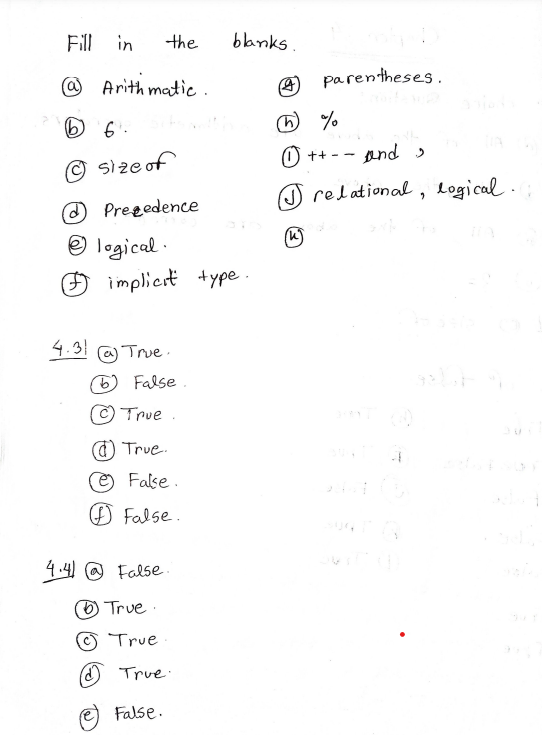 Fill in the blanks.
(a) Arithmatic.
(b) 6.
(c) sizeof
(d) Precedence
(e) logical.
(f) implicit type.
(g) parentheses.
(h) %
(i) ++ -- and ,
(j) relational, logical.
(k)
4.3| (a) True.
(b) False.
(c) True.
(d) True.
(e) False.
(f) False.
4.4| (a) False.
(b) True.
(c) True
(d) True.
(e) False.